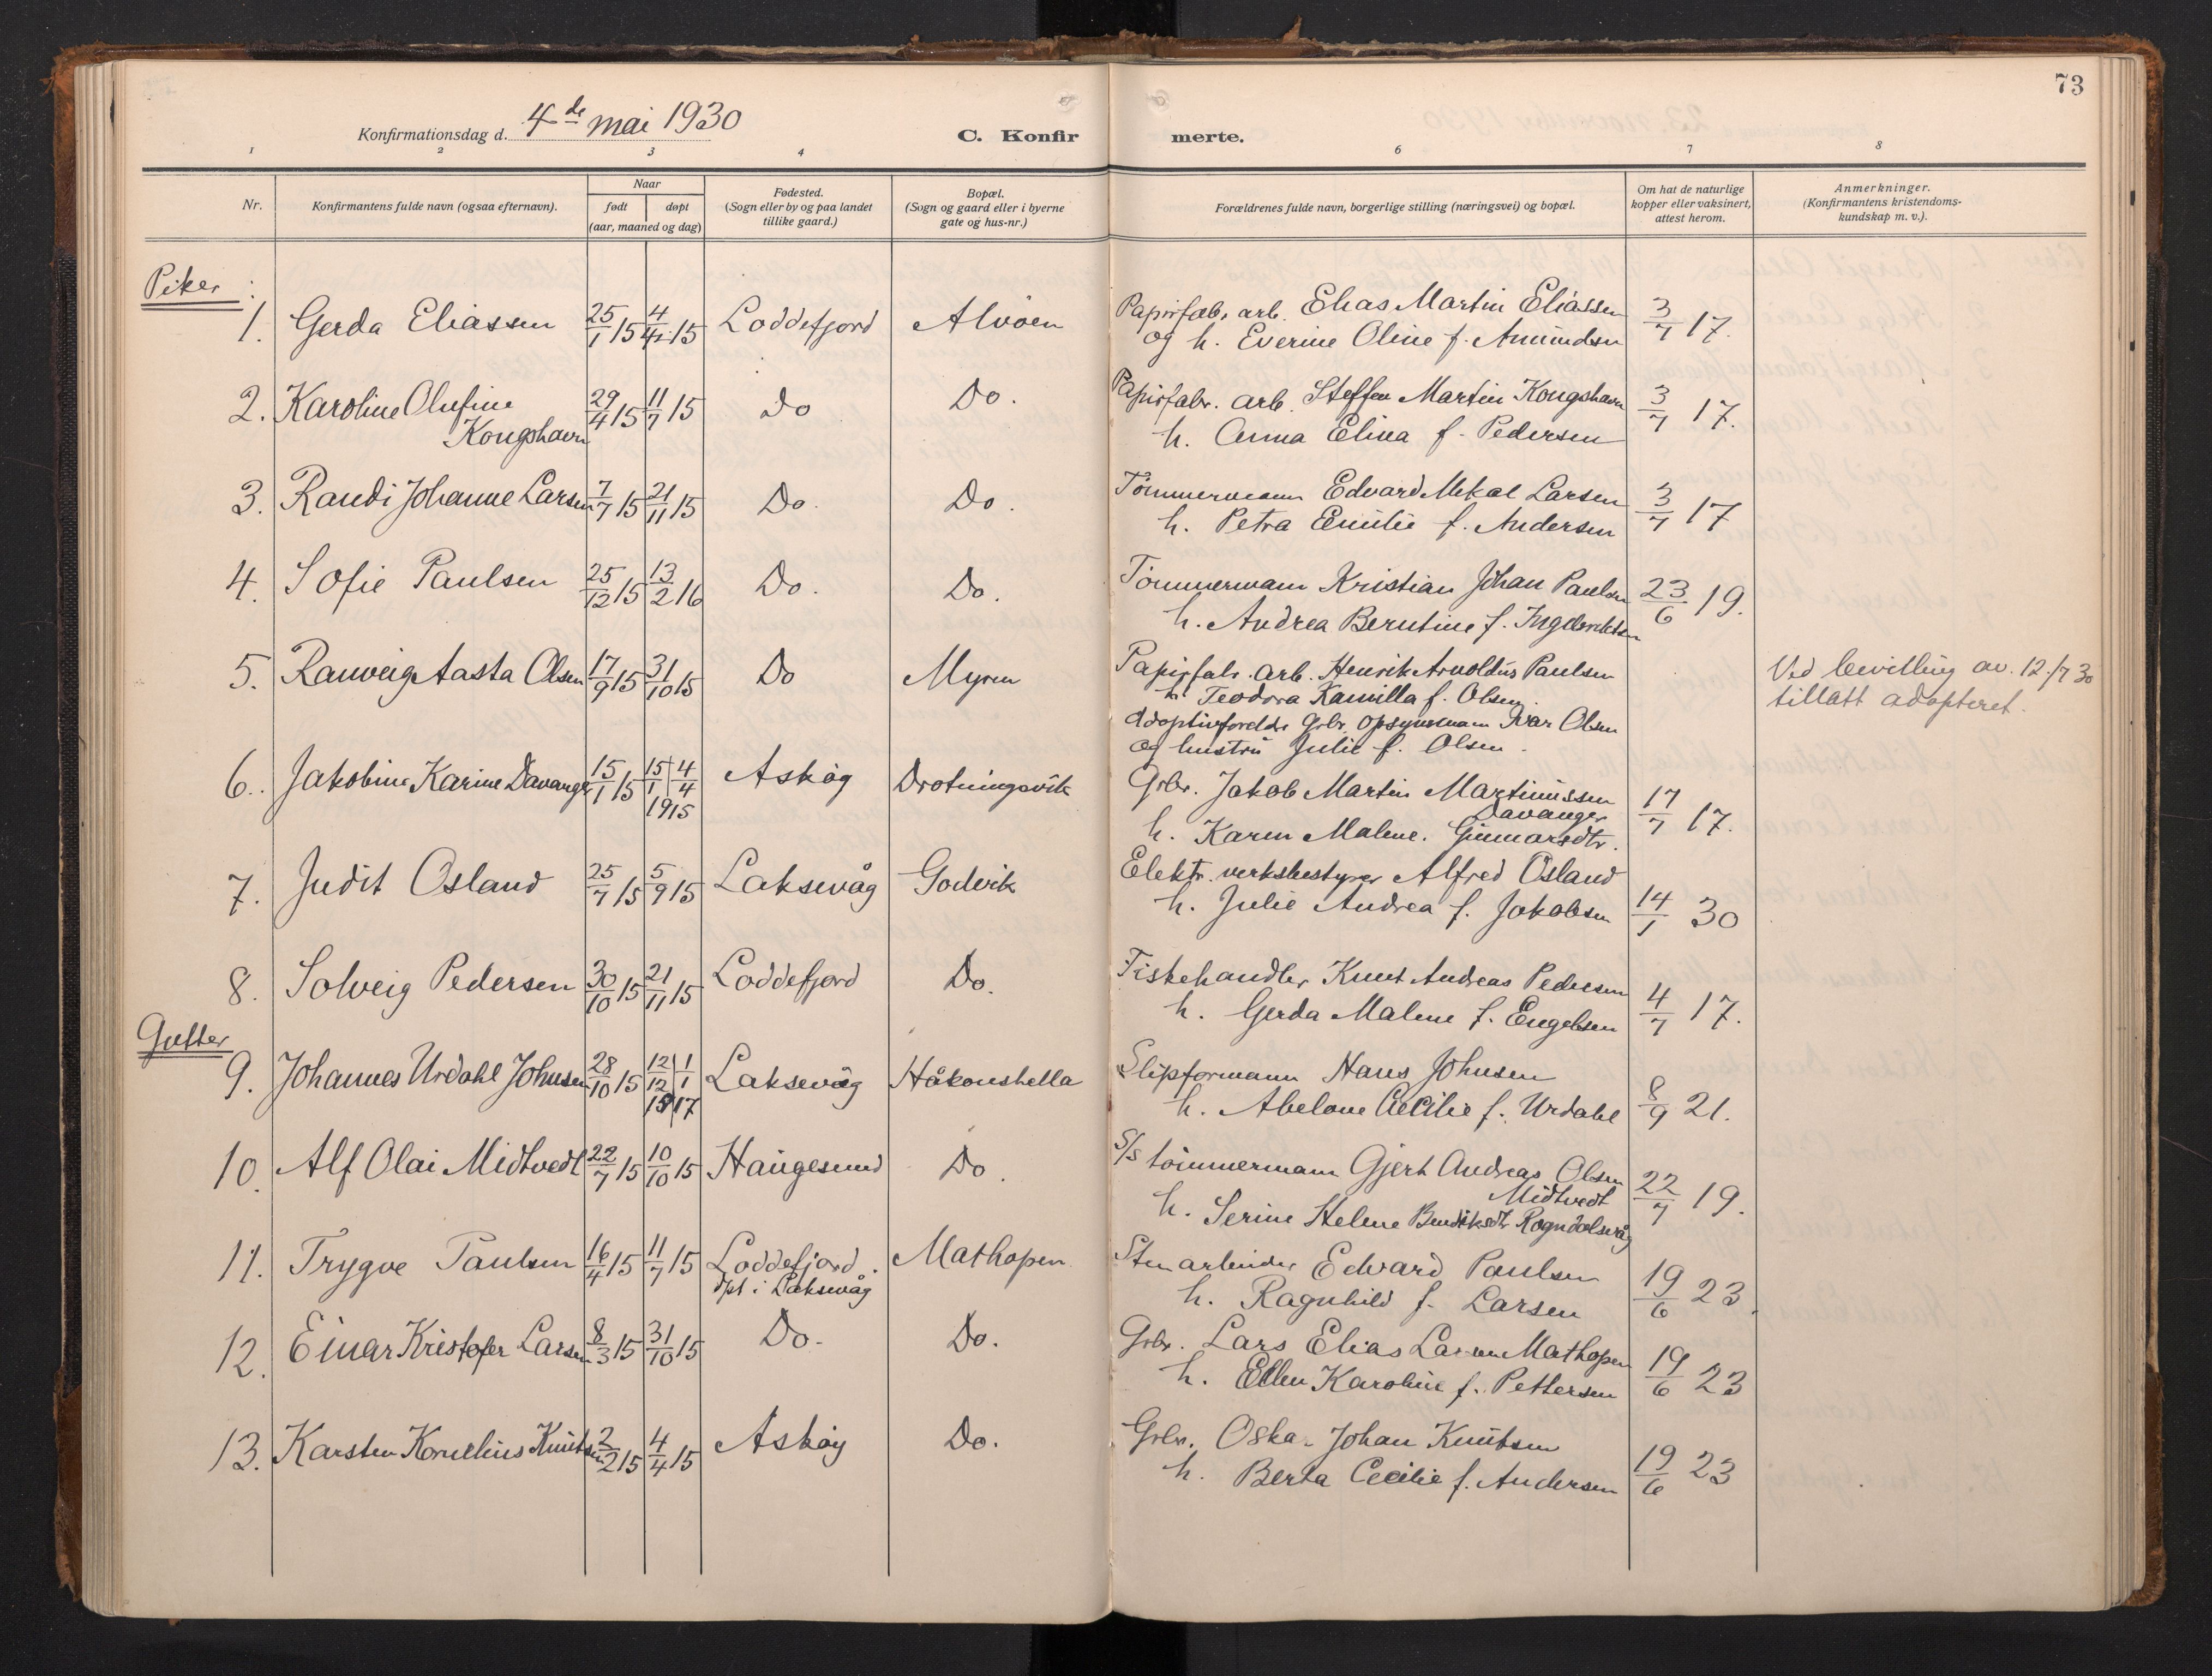 73
Konfirmationsdag d. 4de mai 1930
C. Konfirmerte.
1 2 3 4 6 7 8
Nr.
Konfirmantens fulde navn (ogsaa efternavn).
Naar
født døpt
(aar, maaned og dag)
Fødested.
(Sogn eller by og paa landet
tillike gaard.)
Bopæl.
(Sogn og gaard eller i byerne
gate og hus-nr.)
Forældrenes fulde navn, borgerlige stilling (næringsvei) og bopæl.
Om hat de naturlige
kopper eller vaksinert,
attest herom.
Anmerkninger.
(Konfirmantens kristendoms-
kundskap m. v.).
Piker:
1. Gerda Eliassen 25/1 15 4/4 15 Loddefjord Alvøen
Papirfabr. arb. Elias Martin Eliassen 3/7 17.
og h. Everine Oline f. Amundsen
2. Karoline Olufine 29/4 15 11/7 15 Do Do.
Kongshavn
Papirfabr. arb. Steffen Martin Kongshavn 3/7 17.
h. Anna Elina f. Pedersen
3. Randi Johanne Larsen 7/7 15 21/11 15 Do. Do.
Tömmermann Edvard Mekal Larsen 3/7 17
h. Petra Emilie f. Andersen
4. Sofie Paulsen 25/12 15 13/2 16 Do. Do.
Tömmermann Kristian Johan Paulsen 23/6 19.
h. Andrea Berntine f. Ingebriktsen
5. Ranveig Aasta Olsen 17/9 15 31/10 15 Do Myren
Papirfabr. arb. Henrik Arnoldus Paulsen
h. Teodora Kamilla f. Olsen.
Adoptivforeldre Grbr. opsynsmann Ivar Olsen
og hustru Julie f. Olsen.
Ved bevilling av. 12/7 30
tillatt adopteret.
6. Jakobine Karine Davanger 15/1 15 15/1 4/4 Askøy Drotningsvik
1915
Grbr. Jakob Martin Martinussen 17/7 17.
Davanger
h. Karen Malene. Gunnarsdtr.
7. Judit Osland 25/7 15 5/9 15 Laksevåg Godvik
Elektr. verksbestyrer Alfred Osland
h. Julie Andrea f. Jakobsen 14/1 30
8. Solveig Pedersen 30/10 15 21/11 15 Loddefjord Do.
Fiskehandler Knut Andreas Pedersen 4/7 17.
h. Gerda Malene f. Engelsen
Gutter
9. Johannes Urdahl Johnsen 28/10 15 12/12 1/1 Laksevåg Håkonshella
15 17
Slipformann Hans Johnsen 8/9 21.
h. Abelone Cecilie f. Urdahl
10. Alf Olai Midtvedt 22/7 15 10/10 15 Haugesund Do.
S/s tömmermann Gjert Andreas Olsen 22/7 19.
Midtvedt
h. Serine Helene Bendiksdtr Rognvolsvåg
11. Trygve Paulsen 16/4 15 11/7 15 Loddefjord. Mathopen
dpt i Laksevåg
Stenarbeider Edvard Paulsen 19/6 23.
h. Ragnhild f. Larsen
12. Einar Kristofer Larsen 8/3 15 31/10 15 Do. Do.
Grbr. Lars Elias Larsen Mathopen 19/6 23
h. Ellen Karoline f. Pettersen
13. Karsten Kornelius Knutsen 2/2 15 4/4 15 Askøy Do.
Grbr. Oskar Johan Knutsen 19/6 23
h. Berta Cecilie f. Andersen